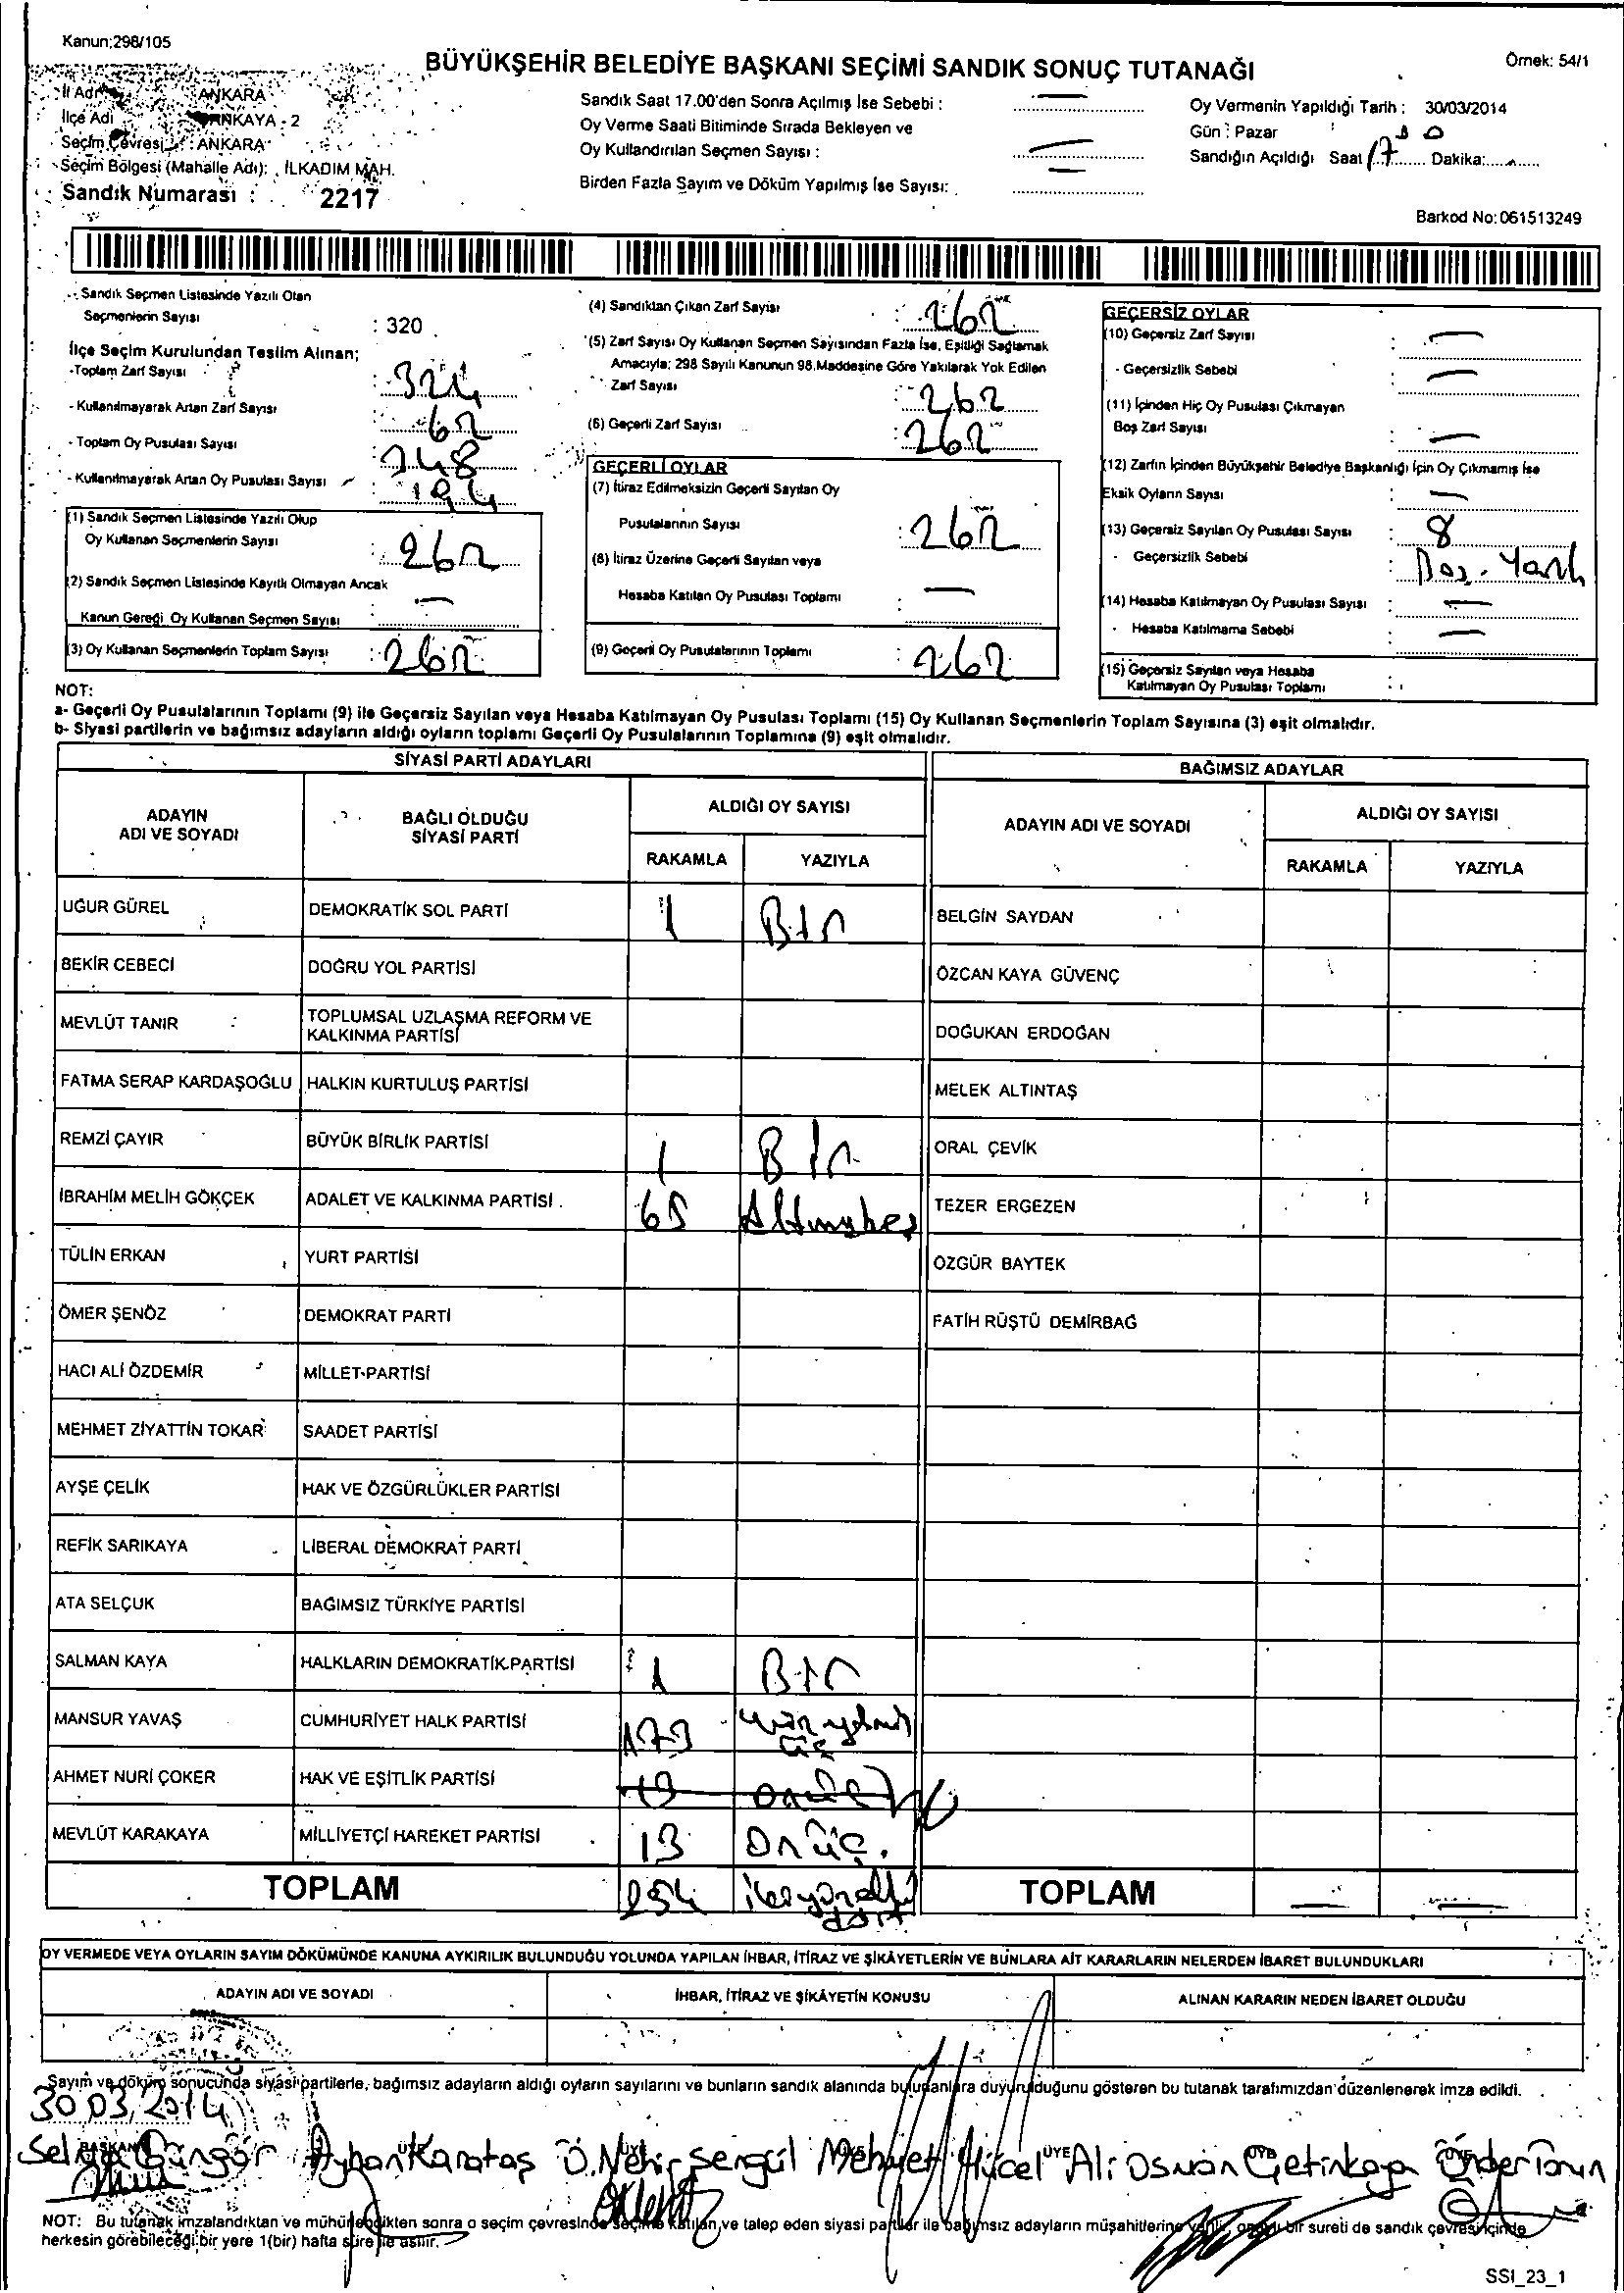 Kanun;298/105
BÜYÜKŞEHİR BELEDİYE BAŞKANI SEÇİMİ SANDIK SONUÇ TUTANAĞI
Örnek: 54/1
İl Adı : ANKARA
İlçe Adı : ÇANKAYA - 2
Seçim Çevresi : ANKARA
Seçim Bölgesi (Mahalle Adı): İLKADIM MAH.
Sandık Numarası : 2217
Sandık Saat 17.00'den Sonra Açılmış İse Sebebi : —
Oy Verme Saati Bitiminde Sırada Bekleyen ve
Oy Kullandırılan Seçmen Sayısı : —
Birden Fazla Sayım ve Döküm Yapılmış İse Sayısı: —
Oy Vermenin Yapıldığı Tarih : 30/03/2014
Gün : Pazar
Sandığın Açıldığı Saat 17 Dakika:
Barkod No:061513249
- Sandık Seçmen Listesinde Yazılı Olan
Seçmenlerin Sayısı : 320
İlçe Seçim Kurulundan Teslim Alınan;
-Toplam Zarf Sayısı : 324
- Kullanılmayarak Artan Zarf Sayısı : 62
- Toplam Oy Pusulası Sayısı
- Kullanılmayarak Artan Oy Pusulası Sayısı : 194
(1) Sandık Seçmen Listesinde Yazılı Olup
Oy Kullanan Seçmenlerin Sayısı : 262
(2) Sandık Seçmen Listesinde Kayıtlı Olmayan Ancak
Kanun Gereği Oy Kullanan Seçmen Sayısı : —
(3) Oy Kullanan Seçmenlerin Toplam Sayısı : 262
(4) Sandıktan Çıkan Zarf Sayısı : 262
(5) Zarf Sayısı Oy Kullanan Seçmen Sayısından Fazla İse, Eşitliği Sağlamak
Amacıyla; 298 Sayılı Kanunun 98.Maddesine Göre Yakılarak Yok Edilen
Zarf Sayısı : 262
(6) Geçerli Zarf Sayısı : 262
GEÇERLİ OYLAR
(7) İtiraz Edilmeksizin Geçerli Sayılan Oy
Pusulalarının Sayısı : 262
(8) İtiraz Üzerine Geçerli Sayılan veya
Hesaba Katılan Oy Pusulası Toplamı : —
(9) Geçerli Oy Pusulalarının Toplamı : 262
GEÇERSİZ OYLAR
(10) Geçersiz Zarf Sayısı : —
- Geçersizlik Sebebi : —
(11) İçinden Hiç Oy Pusulası Çıkmayan
Boş Zarf Sayısı : —
(12) Zarfın İçinden Büyükşehir Belediye Başkanlığı İçin Oy Çıkmamış İse
Eksik Oyların Sayısı : —
(13) Geçersiz Sayılan Oy Pusulası Sayısı : 8
- Geçersizlik Sebebi :
(14) Hesaba Katılmayan Oy Pusulası Sayısı : —
- Hesaba Katılmama Sebebi : —
(15) Geçersiz Sayılan veya Hesaba
Katılmayan Oy Pusulası Toplamı :
NOT:
a- Geçerli Oy Pusulalarının Toplamı (9) ile Geçersiz Sayılan veya Hesaba Katılmayan Oy Pusulası Toplamı (15) Oy Kullanan Seçmenlerin Toplam Sayısına (3) eşit olmalıdır.
b- Siyasi partilerin ve bağımsız adayların aldığı oyların toplamı Geçerli Oy Pusulalarının Toplamına (9) eşit olmalıdır.
SİYASİ PARTİ ADAYLARI
ADAYIN ADI VE SOYADI
BAĞLI OLDUĞU SİYASİ PARTİ
ALDIĞI OY SAYISI
RAKAMLA YAZIYLA
UĞUR GÜREL DEMOKRATİK SOL PARTİ 1 Bir
BEKİR CEBECİ DOĞRU YOL PARTİSİ
MEVLÜT TANIR TOPLUMSAL UZLAŞMA REFORM VE
KALKINMA PARTİSİ
FATMA SERAP KARDAŞOĞLU HALKIN KURTULUŞ PARTİSİ
REMZİ ÇAYIR BÜYÜK BİRLİK PARTİSİ 1 Bir
İBRAHİM MELİH GÖKÇEK ADALET VE KALKINMA PARTİSİ 65 Altmışbeş
TÜLİN ERKAN YURT PARTİSİ
ÖMER ŞENÖZ DEMOKRAT PARTİ
HACI ALİ ÖZDEMİR MİLLET PARTİSİ
MEHMET ZİYATTİN TOKAR SAADET PARTİSİ
AYŞE ÇELİK HAK VE ÖZGÜRLÜKLER PARTİSİ
REFİK SARIKAYA LİBERAL DEMOKRAT PARTİ
ATA SELÇUK BAĞIMSIZ TÜRKİYE PARTİSİ
SALMAN KAYA HALKLARIN DEMOKRATİK PARTİSİ 1 Bir
MANSUR YAVAŞ CUMHURİYET HALK PARTİSİ 173 yüzyetmiş
üç
AHMET NURİ ÇOKER HAK VE EŞİTLİK PARTİSİ 13 onüç
MEVLÜT KARAKAYA MİLLİYETÇİ HAREKET PARTİSİ 13 Onüç.
TOPLAM 254 ikiyüzelli
dört
BAĞIMSIZ ADAYLAR
ADAYIN ADI VE SOYADI
ALDIĞI OY SAYISI
RAKAMLA YAZIYLA
BELGİN SAYDAN
ÖZCAN KAYA GÜVENÇ
DOĞUKAN ERDOĞAN
MELEK ALTINTAŞ
ORAL ÇEVİK
TEZER ERGEZEN
ÖZGÜR BAYTEK
FATİH RÜŞTÜ DEMİRBAĞ
TOPLAM — —
OY VERMEDE VEYA OYLARIN SAYIM DÖKÜMÜNDE KANUNA AYKIRILIK BULUNDUĞU YOLUNDA YAPILAN İHBAR, İTİRAZ VE ŞİKÂYETLERİN VE BUNLARA AİT KARARLARIN NELERDEN İBARET BULUNDUKLARI
ADAYIN ADI VE SOYADI İHBAR, İTİRAZ VE ŞİKÂYETİN KONUSU ALINAN KARARIN NEDEN İBARET OLDUĞU
Sayım ve döküm sonucunda siyasi partilerle, bağımsız adayların aldığı oyların sayılarını ve bunların sandık alanında bulunanlara duyurulduğunu gösteren bu tutanak tarafımızdan düzenlenerek imza edildi.
30.03.2014
BAŞKAN ÜYE ÜYE ÜYE ÜYE ÜYE ÜYE
Güngör Ayhan Karataş Ö.Nehir Şengül Mehmet Yücel Ali Osman Çetinkaya Önder Torun
NOT: Bu tutanak imzalandıktan ve mühürlendikten sonra o seçim çevresinde seçime katılan ve talep eden siyasi partiler ile bağımsız adayların müşahitlerine verilir, onaylı bir sureti de sandık çevresi içinde
herkesin görebileceği bir yere 1(bir) hafta süre ile asılır.
SSI_23_1